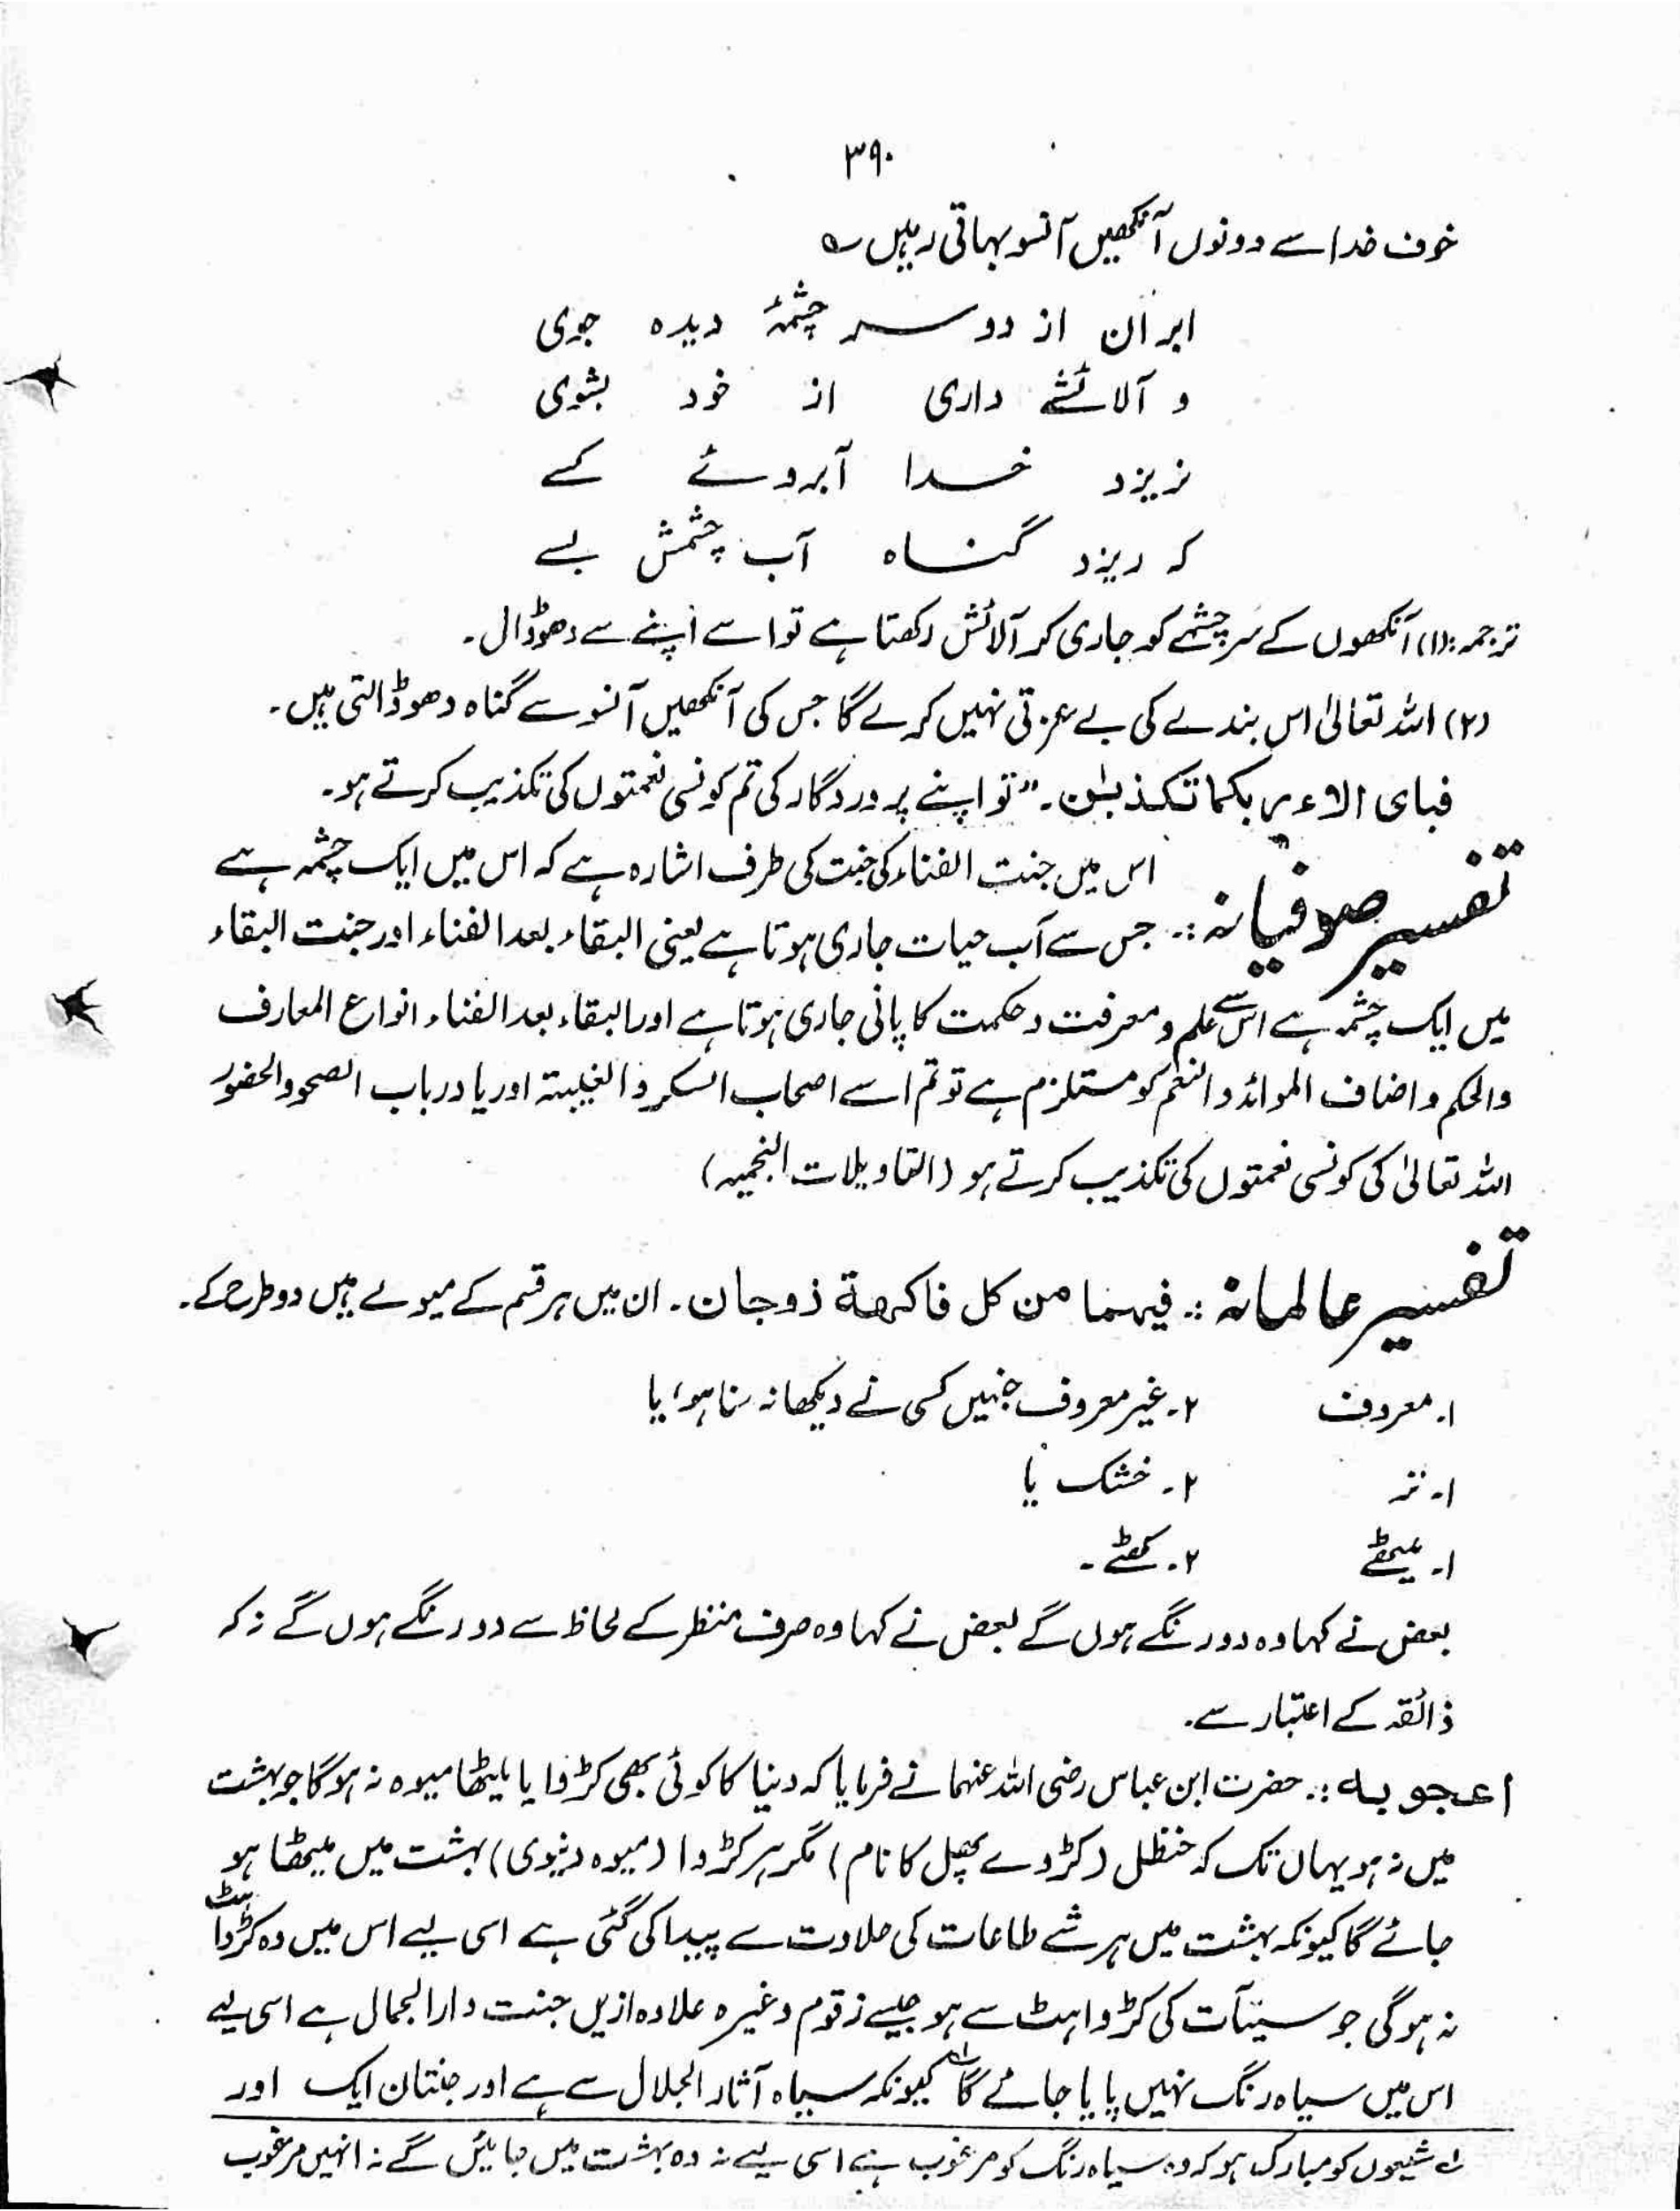 ۳۹۰
خوف خدا سے دونوں آنکھیں آنسو بہاتی رہیں ؎
ابراں از دو سر چشمۂ دیدہ جوی
و آلائشے داری از خود بشوی
نریزد خدا آبروئے کسے
کہ ریزد گناہ آب چشمش بسے
ترجمہ: (۱) آنکھوں کے سرچشمے کو جاری کر آلائش رکھتا ہے تو اسے اپنے سے دھو ڈال۔
(۲) اللہ تعالیٰ اس بندے کی بے عزتی نہیں کرے گا جس کی آنکھیں آنسو سے گناہ دھو ڈالتی ہیں۔
فبای الاء ربکما تکذبٰن۔ ”تو اپنے پروردگار کی تم کونسی نعمتوں کی تکذیب کرتے ہو۔
تفسیر صوفیانہ :۔ اس میں جنت الفناء کی جنت کی طرف اشارہ ہے کہ اس میں ایک چشمہ ہے
جس سے آب حیات جاری ہوتا ہے یعنی البقاء بعد الفناء اور جنت البقاء
میں ایک چشمہ ہے اس سے علم و معرفت و حکمت کا پانی جاری ہوتا ہے اور البقاء بعد الفناء انواع المعارف
والحکم و اضاف الموائد و النعم کو مستلزم ہے تو تم اسے اصحاب السکر و الغیبتہ اور یا درباب الصحو والحضور
اللہ تعالیٰ کی کونسی نعمتوں کی تکذیب کرتے ہو (التاویلات النجمیہ)
تفسیر عالمانہ :۔ فیہما من کل فاکہۃ زوجان۔ ان میں ہر قسم کے میوے ہیں دو طرح کے۔
۱۔ معروف ۲۔ غیر معروف جنہیں کسی نے دیکھا نہ سنا ہو، یا
۱۔ تر ۲۔ خشک یا
۱۔ میٹھے ۲۔ کھٹے۔
بعض نے کہا وہ دو رنگے ہوں گے بعض نے کہا وہ صرف منظر کے لحاظ سے دو رنگے ہوں گے نہ کہ
ذائقہ کے اعتبار سے۔
اعجوبہ :۔ حضرت ابن عباس رضی اللہ عنہما نے فرمایا کہ دنیا کا کوئی بھی کڑوا یا میٹھا میوہ نہ ہوگا جو بہشت
میں نہ ہو یہاں تک کہ حنظل (کڑوے پھل کا نام) مگر ہر کڑوا (میوہ دنیوی) بہشت میں میٹھا ہو
جائے گا کیونکہ بہشت میں ہر شے طاعات کی حلاوت سے پیدا کی گئی ہے اسی لیے اس میں وہ کڑواہٹ
نہ ہوگی جو سیّآت کی کڑواہٹ سے ہو جیسے زقوم وغیرہ علاوہ ازیں جنت دارالجمال ہے اسی لیے
اس میں سیاہ رنگ نہیں پایا جائے گا لہ کیونکہ سیاہ آثار الجلال سے ہے اور جنتان ایک اور
لہ شیعوں کو مبارک ہو کہ وہ سیاہ رنگ کو مرغوب ہے اسی لیے نہ وہ بہشت میں جائیں گے نہ انہیں مرغوب